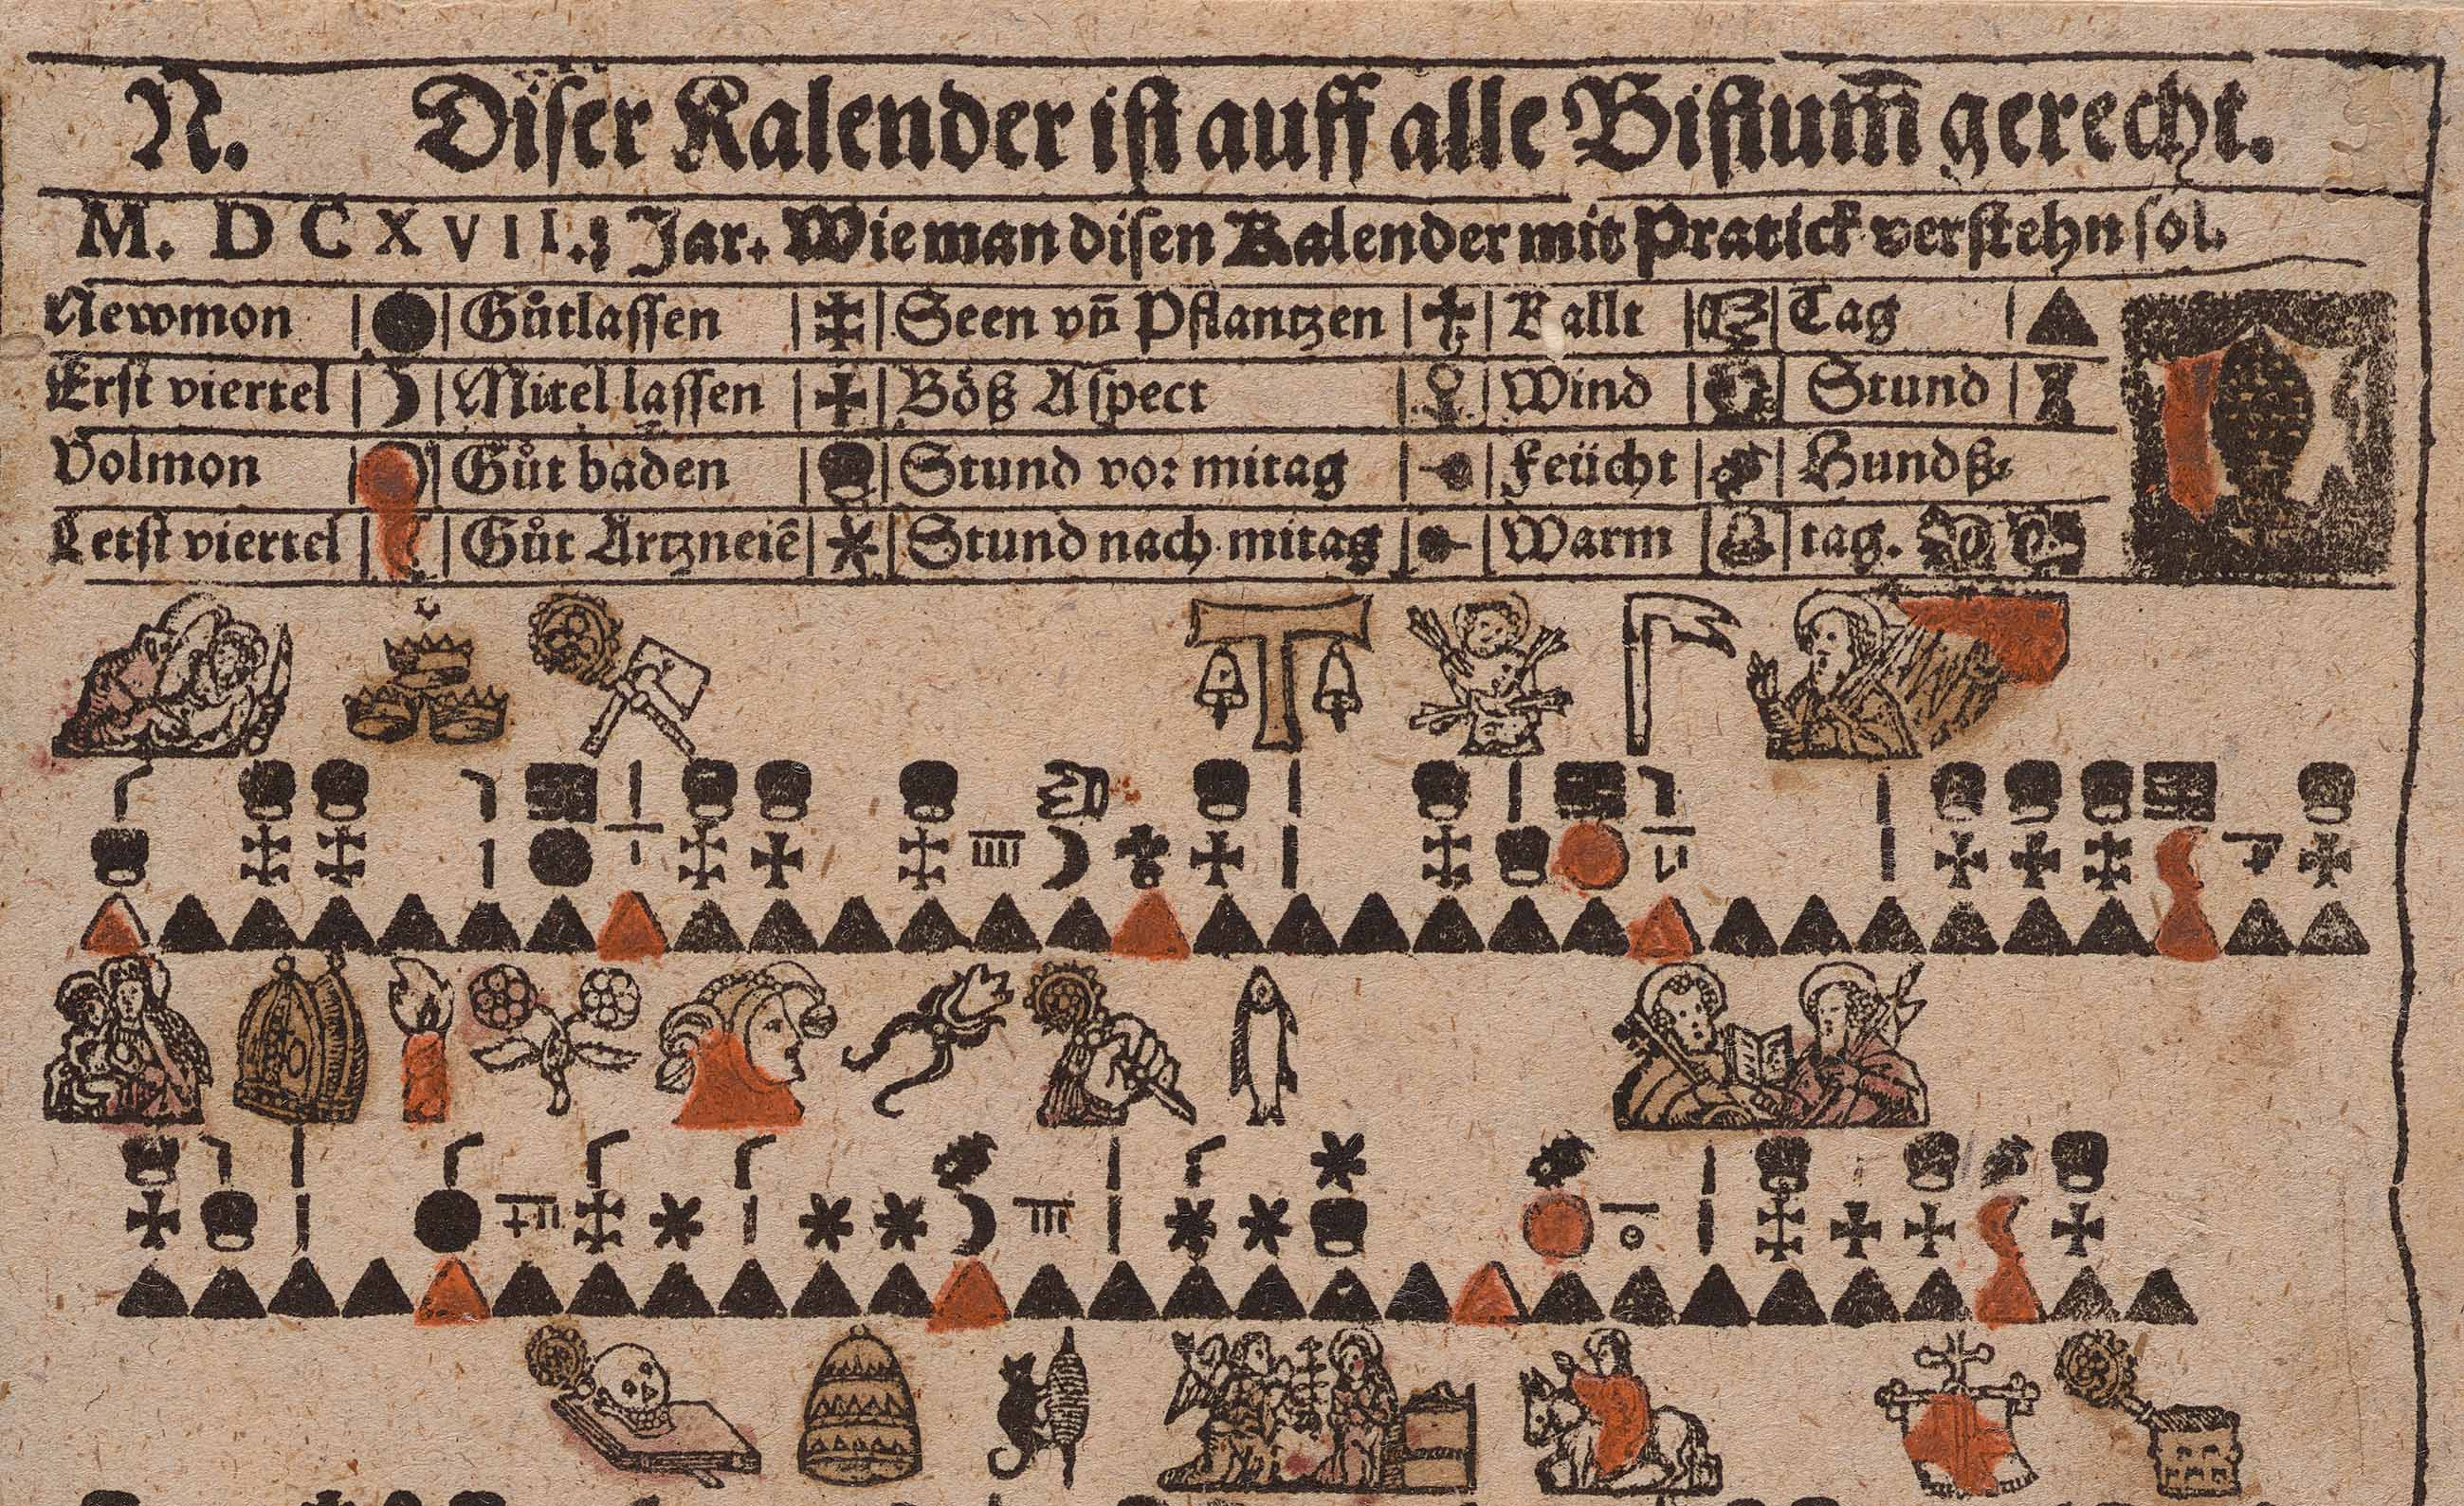 N. Diser Kalender ist auff alle Bistum̄ gerecht.
M. D C X V I I. Jar. Wie man disen Kalender mit Pratick verstehn sol.
Newmon Gůtlassen Seen vn̄ Pflantzen Kallt Tag
Erst viertel Mitel lassen Bo̊ß Aspect Wind Stund
Volmon Gůt baden Stund vor mitag Feücht Hundß⸗
Letst viertel Gůt Artzneiē Stund nach mitag Warm tag.